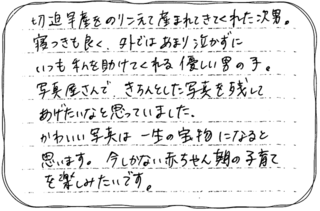 切迫早産をのりこえて産まれてきてくれた次男。
寝つきも良く、外ではあまり泣かずに
いつも私を助けてくれる優しい男の子。
写真屋さんで、きちんとした写真を残して
あげたいなと思っていました。
かわいい写真は一生の宝物になると
思います。今しかない赤ちゃん期の子育て
を楽しみたいです。